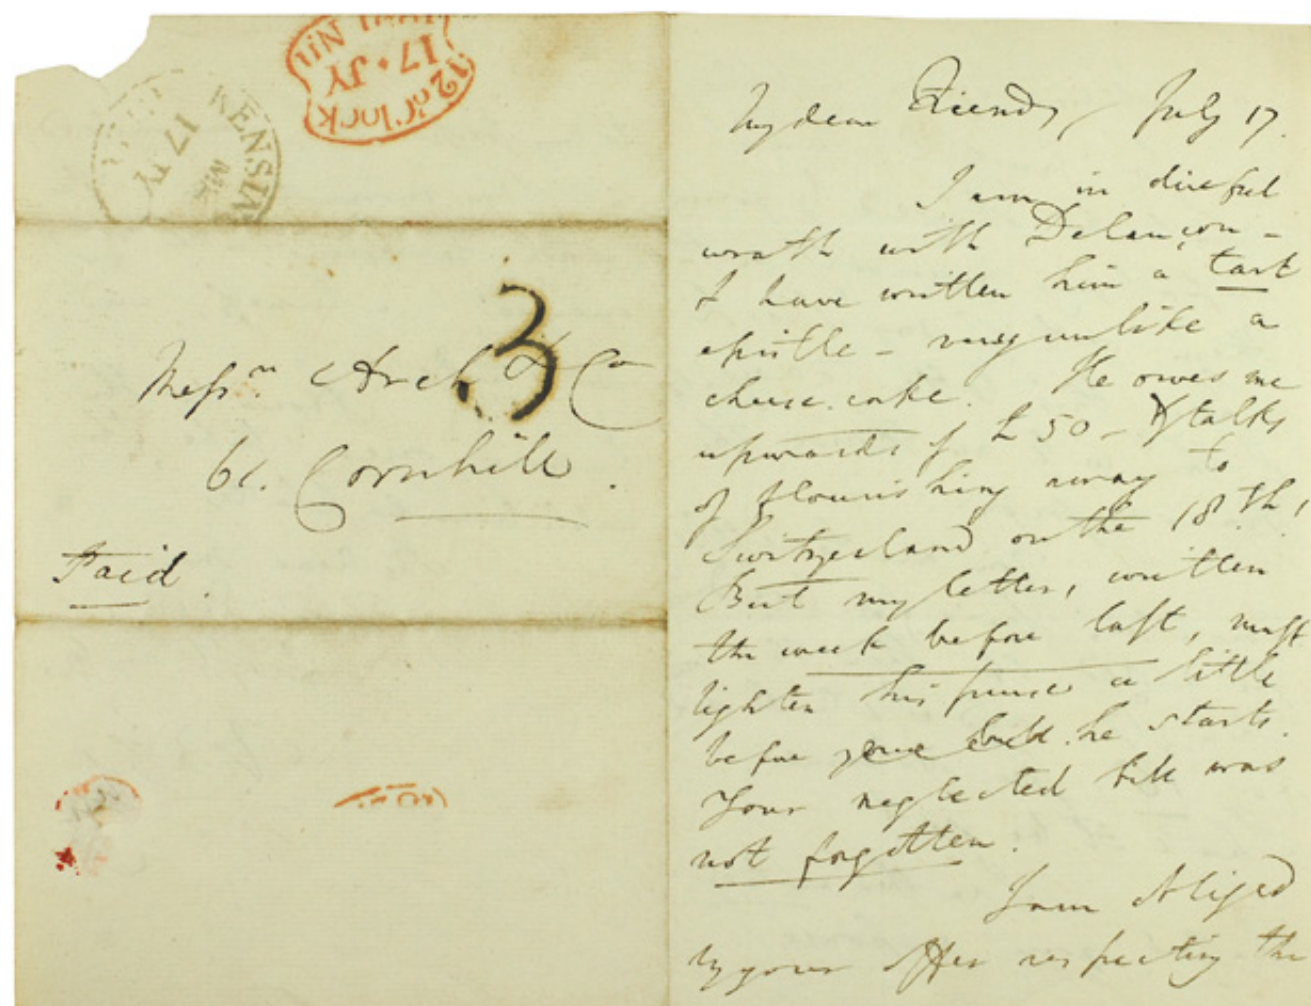 12 o'Clock
17 · JY
KENSING
17 JY
3
Messrs. Arch & Co
61. Cornhill.
Paid.
My dear Friends, July 17.
I am in direful
wrath with Delançon –
I have written him a tart
epistle – very unlike a
cheese-cake. He owes me
upwards of £50 – & talks
of flourishing away to
Switzerland on the 18th,
But my letter, written
the week before last, must
lighten his purse a little
before he starts.
Your neglected bill was
not forgotten.
I am obliged
by your offer respecting the